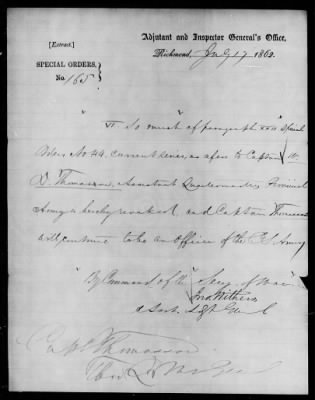 [Extract.]
Adjutant and Inspector General's Office,
Richmond, July 17 1862.
SPECIAL ORDERS,
No. 165
VI So much of paragraph XXII Special
Orders No 44 current series, as refers to Captain W.
D. Thomason, Assistant Quartermaster Provisional
Army is hereby revoked, and Captain Thomason
will continue to be an Officer of the C.S. Army
"By Command of the Secy. of War"
Jno Withers
Asst. Adjt Genl
Capt Thomason
Thro